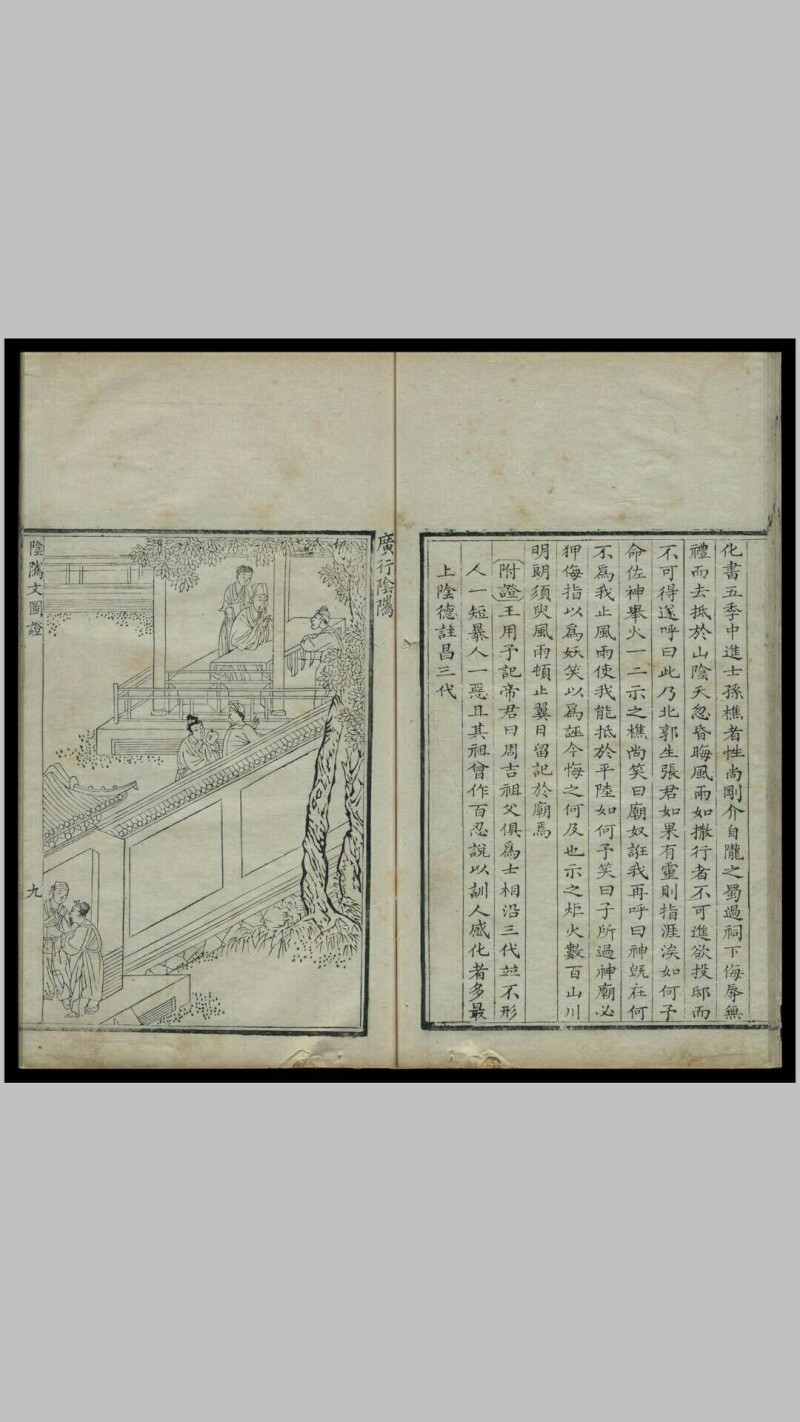 化書五季中進士孫樵者性尚剛介自隴之蜀過祠下侮辱無
禮而去抵於山陰天忽昏晦風雨如撒行者不可進欲投邸而
不可得遂呼曰此乃北郭生張君如果有靈則指涯涘如何予
命佐神舉火一二示之樵尚笑曰廟奴誑我再呼曰神既在何
不為我止風雨使我能抵於平陸如何予笑曰子所過神廟必
狎侮指以為妖笑以為誣今悔之何及也示之炬火數百山川
明朗須臾風雨頓止翼日留記於廟焉
附證王用予記帝君曰周吉祖父俱為士相沿三代並不形
人一短暴人一惡且其祖曾作百忍說以訓人感化者多最
上陰德註昌三代
廣行陰騭
陰騭文圖證
九